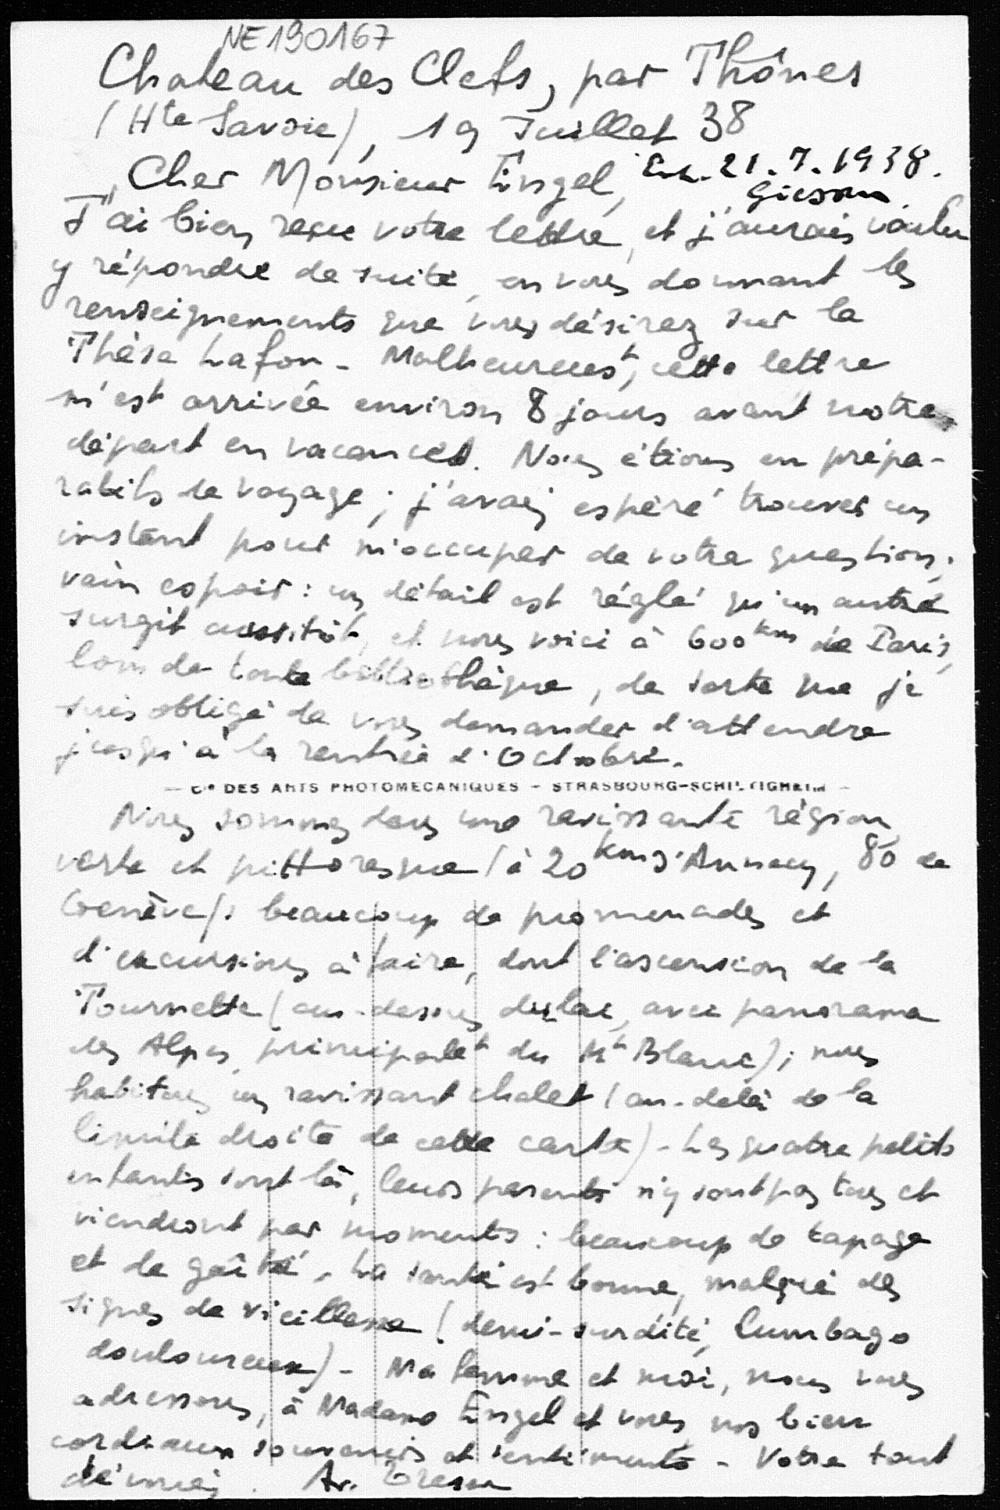 NE190167
Chateau des Clefs, par Thônes
(Hte Savoie), 19 Juillet 38
Cher Monsieur Engel, 21.7.1938.
J'ai bien reçu votre lettre, et j'aurais voulu
y répondre de suite, en vous donnant les
renseignements que vous désirez sur la
Thèse Lafon - Malheureust, cette lettre
m'est arrivée environ 8 jours avant notre
départ en vacances. Nous étions en prépa-
ratifs de voyage ; j'avais espéré trouver un
instant pour m'occuper de votre question ;
vain espoir : un détail est réglé qu'un autre
surgit aussitôt, et nous voici à 600 kms de Paris,
loin de toute bibliothèque, de sorte que je
suis obligé de vous demander d'attendre
jusqu'à la rentrée d'Octobre.
— Cie DES ARTS PHOTOMECANIQUES - STRASBOURG-SCHILTIGHEIM —
Nous sommes dans une ravissante région,
verte et pittoresque (à 20 kms d'Annecy, 80 de
Genève) : beaucoup de promenades et
d'excursions à faire, dont l'ascension de la
Tournette (au-dessus du lac, avec panorama
des Alpes, principalet du Mt Blanc) ; nous
habitons un ravissant chalet (au-delà de la
limite droite de cette carte) - Les quatre petits
enfants sont là, leurs parents n'y sont pas tous et
viendront par moments : beaucoup de tapage
et de gaîté. La santé est bonne, malgré des
signes de vieillesse (demi-surdité, lumbago
douloureux) - Ma femme et moi, nous vous
adressons, à Madame Engel et vous, nos bien
cordiaux souvenirs et sentiments - Votre tout
dévoué.